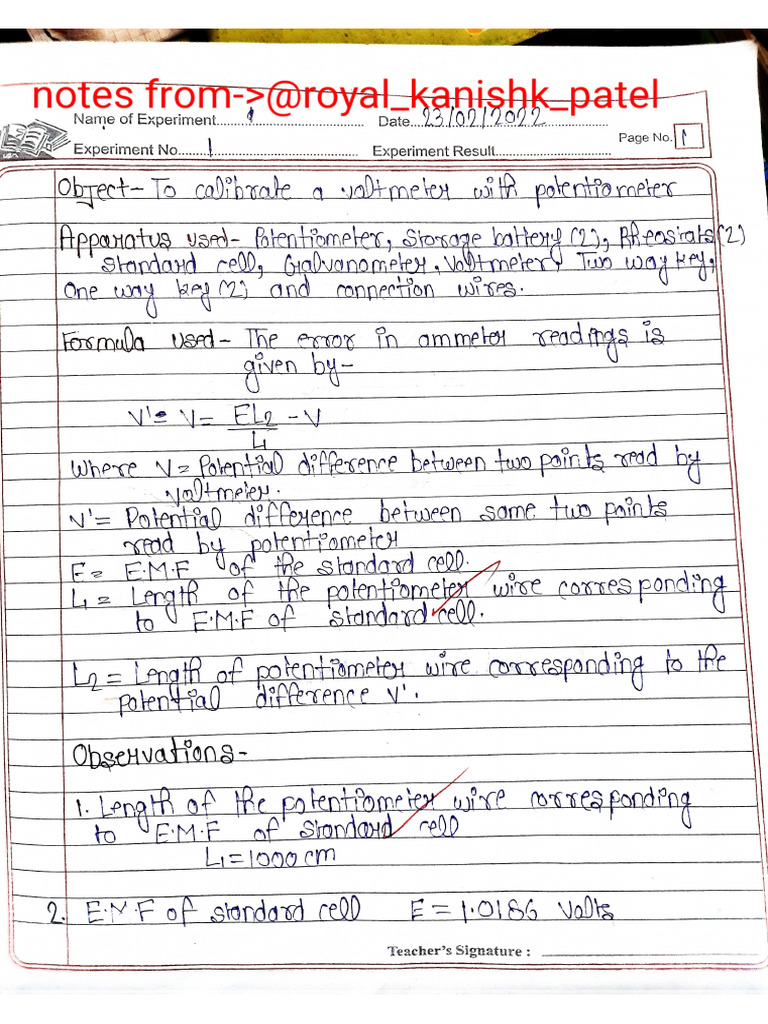 notes from->@royal_kanishk_patel
Name of Experiment.....1..... Date...23/02/2022...
Page No. 1
Experiment No......1..... Experiment Result..........
Object- To calibrate a voltmeter with potentiometer
Apparatus used- Potentiometer, Storage battery (2), Rheostats (2)
Standard cell, Galvanometer, Voltmeter, Two way key,
One way key (2) and connection wires.
Formula used- The error in ammeter readings is
given by-
V'- V= EL2/L1 - V
Where V= Potential difference between two points read by
voltmeter.
V'= Potential difference between same two points
read by potentiometer
E= E.M.F of the standard cell.
L1= Length of the potentiometer wire corresponding
to E.M.F of standard cell.
L2= Length of potentiometer wire corresponding to the
potential difference V'.
Observations-
1. Length of the potentiometer wire corresponding
to E.M.F of standard cell
L1=1000 cm
2. E.M.F of standard cell E=1.0186 Volts
Teacher's Signature :